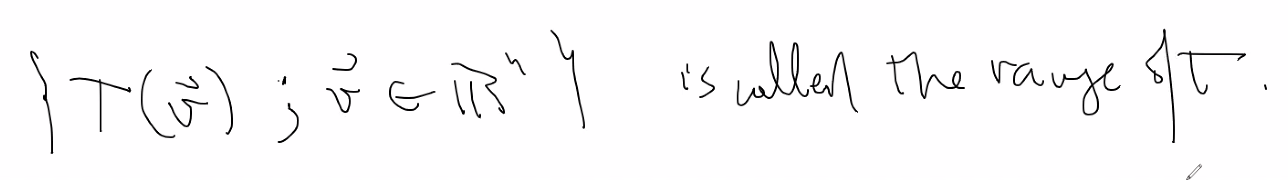 { T(v⃗) ; v⃗ ∈ ℝⁿ } is called the range of T.